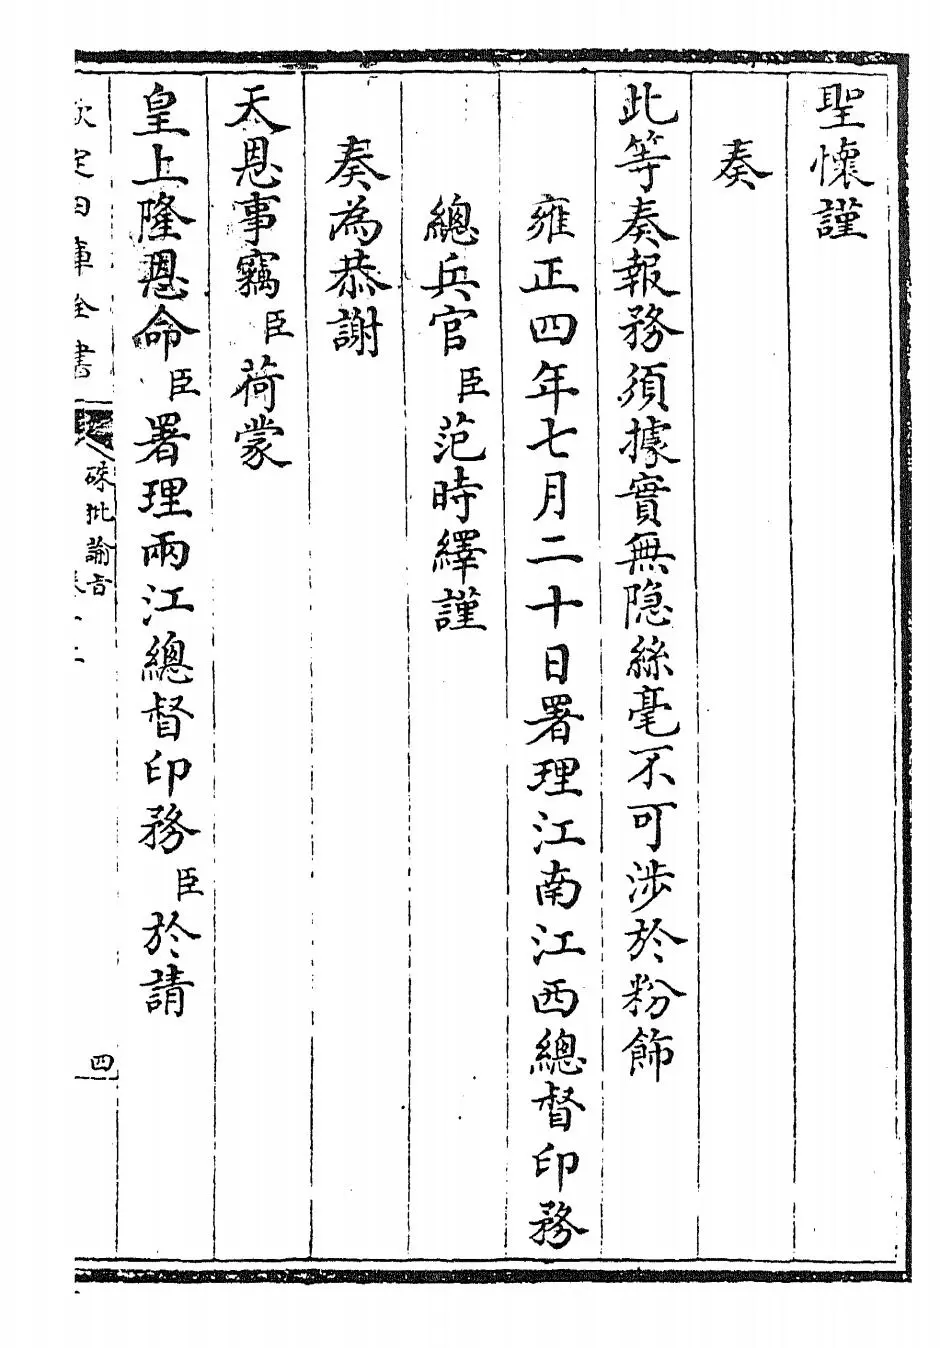 聖懷謹
奏
此等奏報務須據實無隐絲毫不可涉於粉飾
雍正四年七月二十日署理江南江西總督印務
總兵官臣范時繹謹
奏為恭謝
天恩事竊臣荷蒙
皇上隆恩命臣署理兩江總督印務臣於請
欽定四庫全書
硃批諭旨
四